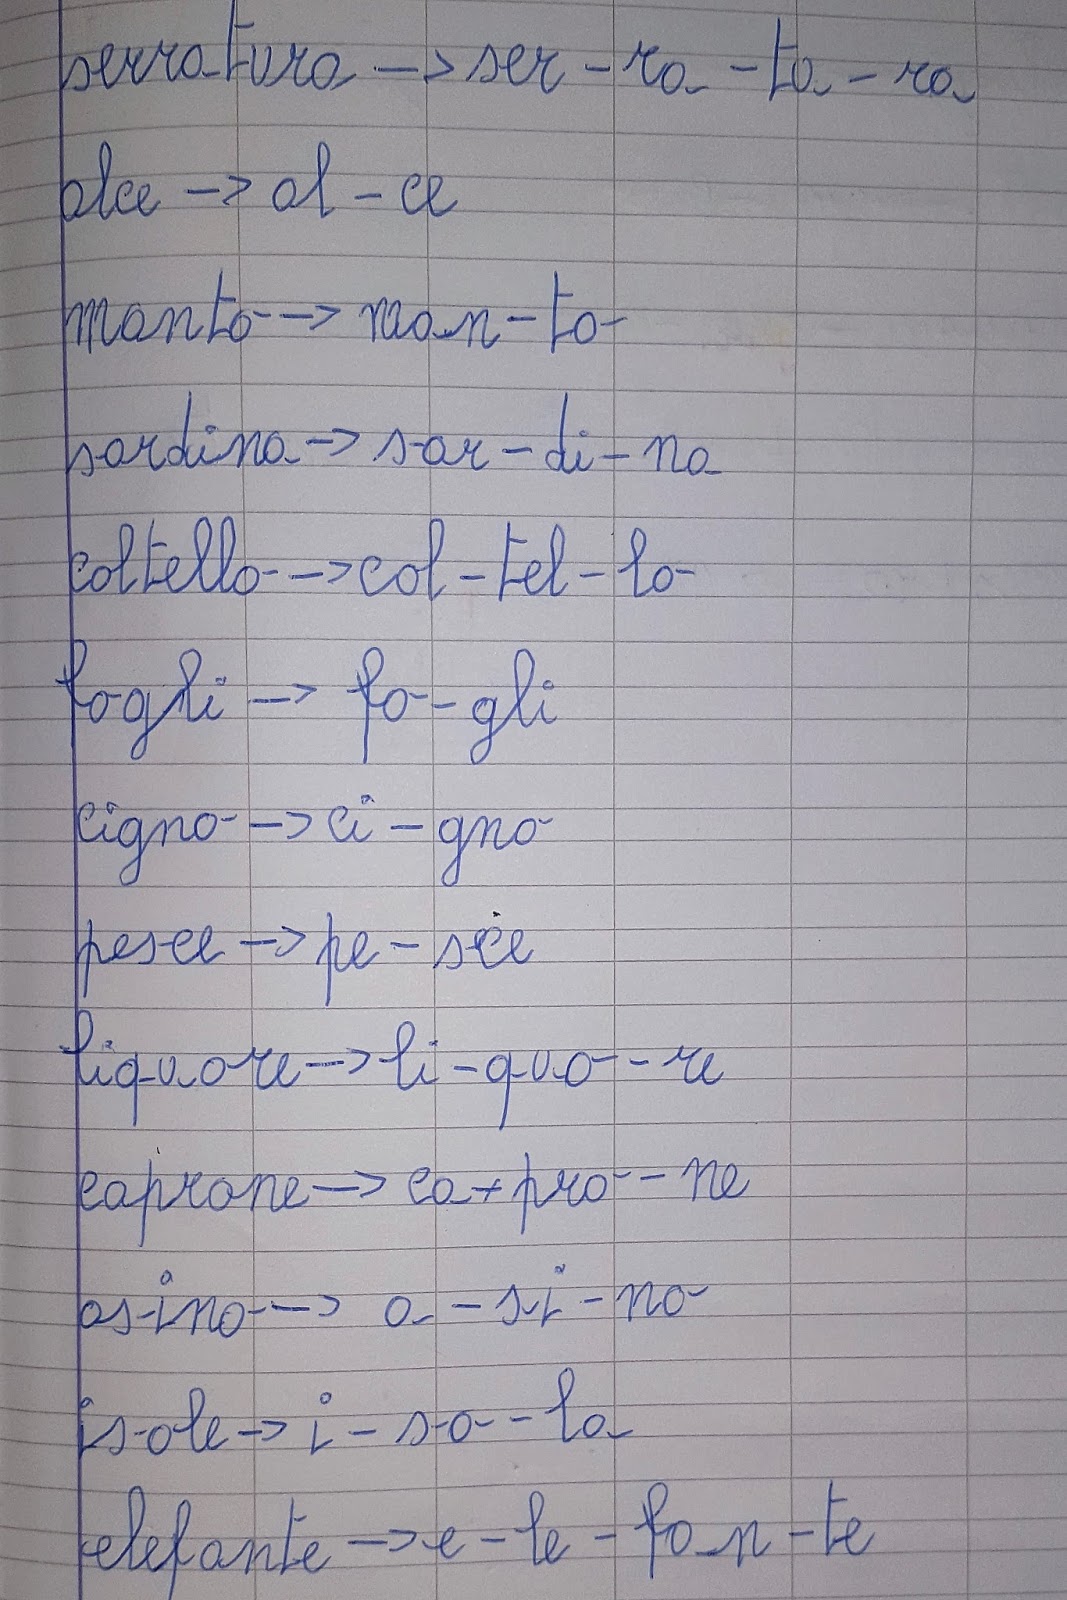 serratura -> ser - ra - ta - ra
alce -> al - ce
manto -> man - to
sardina -> sar - di - na
coltello -> col - tel - lo
fogli -> fo - gli
cigno -> ci - gno
pesce -> pe - sce
liquore -> li - quo - re
caprone -> ca + pro - ne
asino -> a - si - no
isole -> i - so - la
elefante -> e - le - fan - te